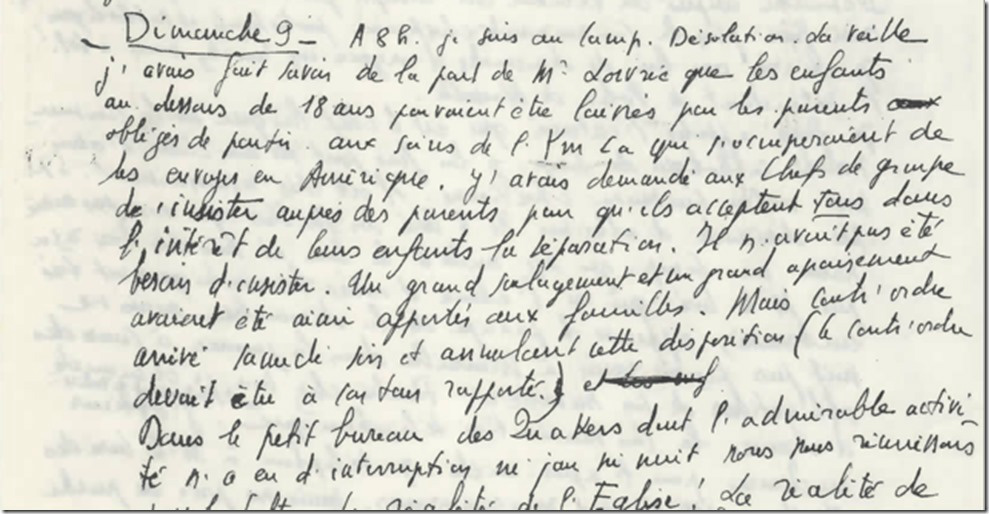 _ Dimanche 9 _ A 8 h. je suis au camp. Désolation. La veille
j'avais fait savoir de la part de Mr Lowrie que les enfants
au dessous de 18 ans pouvaient être laissés par les parents
obligés de partir aux soins de l'Ymca qui s'occuperaient de
les envoyer en Amérique. J'avais demandé aux Chefs de groupe
d'insister auprès des parents pour qu'ils acceptent tous dans
l'intérêt de leurs enfants la séparation. Il n'avait pas été
besoin d'insister. Un grand soulagement et un grand apaisement
avaient été ainsi apportés aux familles. Mais contr'ordre
arrivé samedi soir et annulant cette disposition (le contr'ordre
devait être à son tour rapporté.) et
Dans le petit bureau des Quakers dont l'admirable activi
té n'a eu d'interruption ni jour ni nuit nous nous réunissons
réalité de l'Eglise! La réalité de